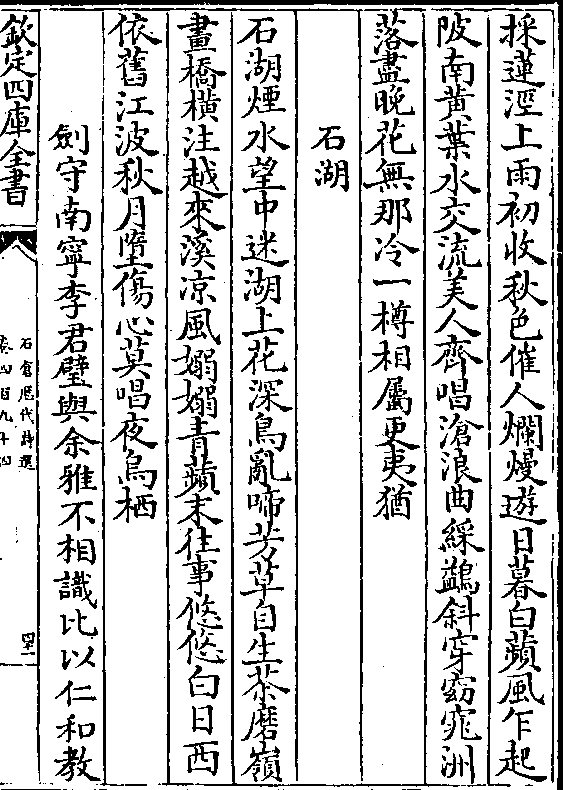 採蓮涇上雨初收秋色催人爛熳遊日暮白蘋風乍起
陂南黄葉水交流美人齊唱滄浪曲綵鷁斜穿窈窕洲
落盡晚花無那冷一樽相屬更夷猶
石湖
石湖煙水望中迷湖上花深鳥亂啼芳草自生茶磨嶺
畫橋橫注越來溪凉風嫋嫋青蘋末往事悠悠白日西
依舊江波秋月墮傷心莫唱夜烏栖
劍守南寧李君璧與余雅不相識比以仁和教
欽定四庫全書
石倉歴代詩選
卷四百九十四